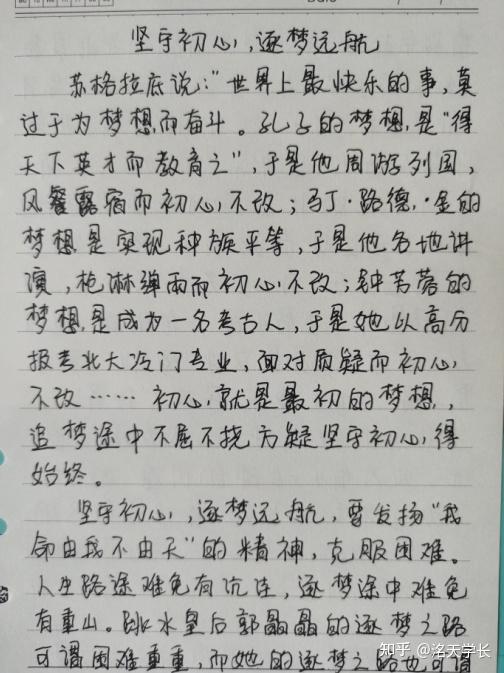 坚守初心,逐梦远航
苏格拉底说:"世界上最快乐的事,莫
过于为梦想而奋斗。孔子的梦想,是"得
天下英才而教育之",于是他周游列国,
风餐露宿而初心不改;马丁·路德·金的
梦想是实现种族平等,于是他各地讲
演,枪淋弹雨而初心不改;钟芳蓉的
梦想,是成为一名考古人,于是她以高分
报考北大冷门专业,面对质疑而初心
不改……初心,就是最初的梦想,
追梦途中不屈不挠方能坚守初心,得
始终。
坚守初心,逐梦远航,要发扬"我
命由我不由天"的精神,克服困难。
人生路途难免有坑洼,逐梦途中难免
有重山。跳水皇后郭晶晶的逐梦之路
可谓困难重重,而她的逐梦之路也可谓
知乎 @洺天学长